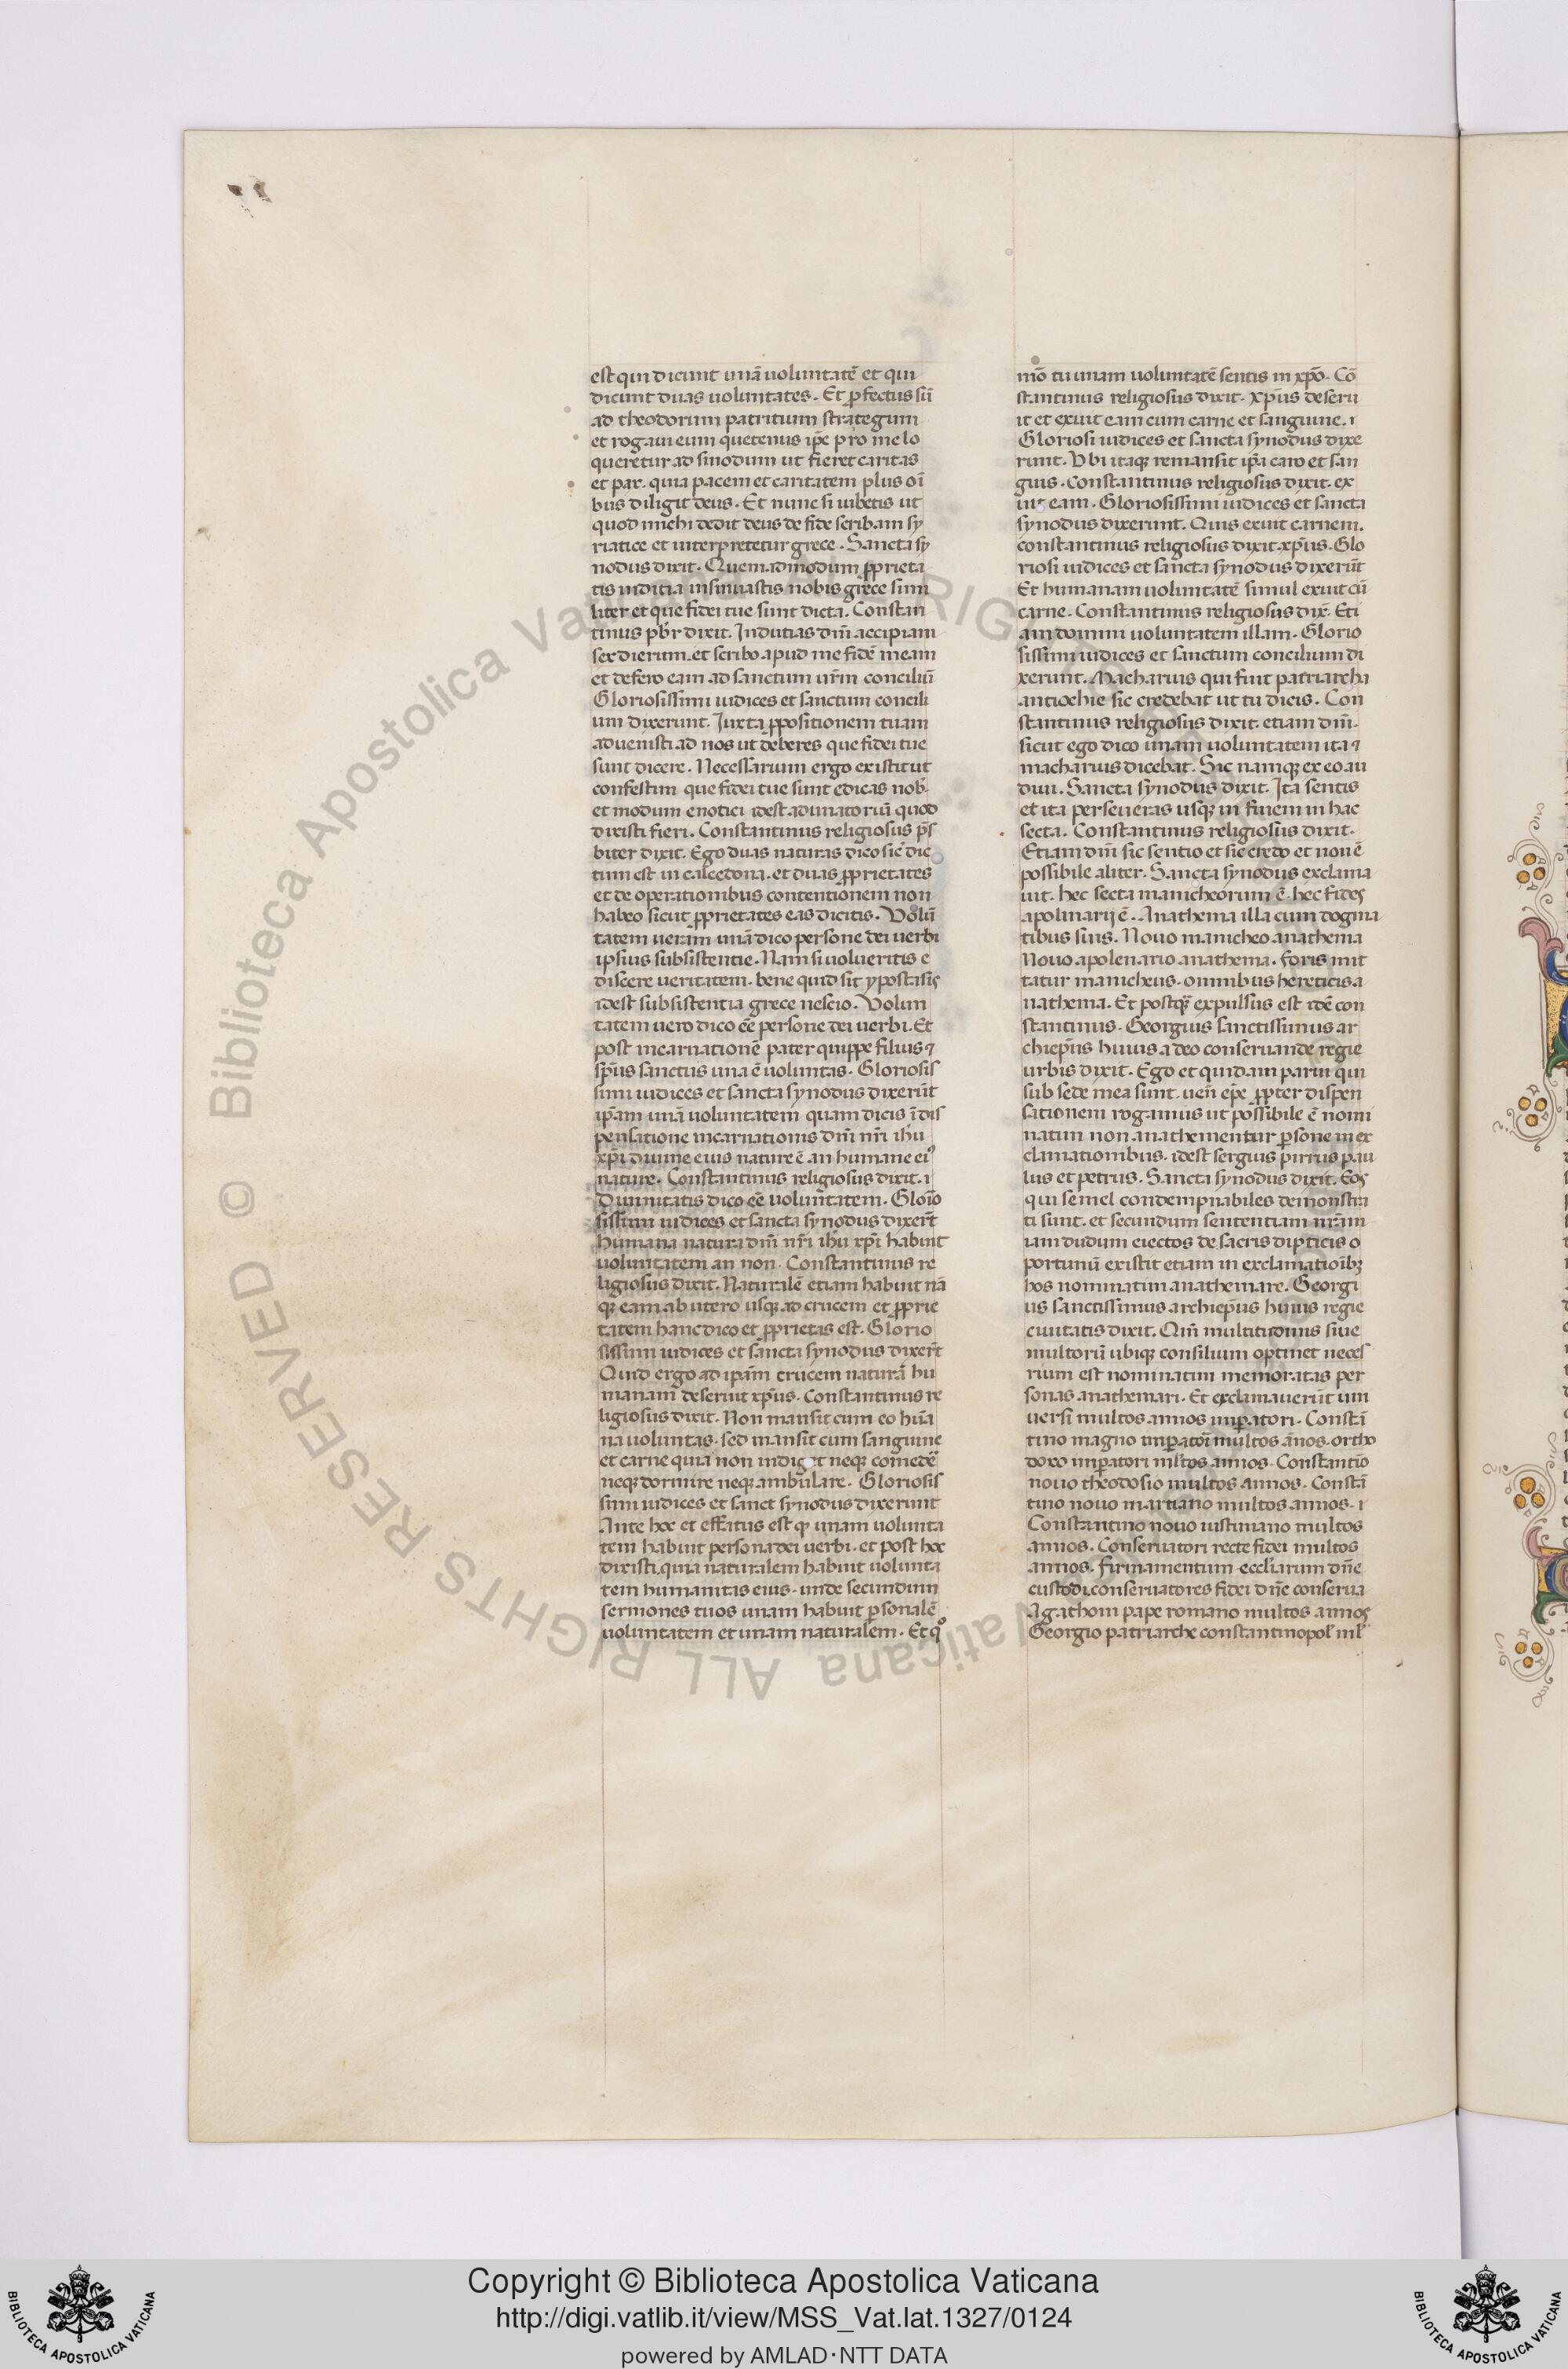 est qui dicunt unā uoluntatē et qui
dicunt duas uoluntates. Et ꝑfectus sū
ad theodorum patritium strategum
et rogaui eum quetenus ip̄e pro me lo
queretur ad sinodum ut fieret caritas
et pax. quia pacem et caritatem plus oī
bus diligit deus. Et nunc si iubetis ut
quod michi dedit deus de fide scribam sy
riatice et interpretetur grece. Sancta sy
nodus dixit. Quemadmodum ꝓprieta
tis inditia insinuastis nobis grece simi
liter et que fidei tue sunt dicta. Constan
tinus pb̄r dixit. Indutias dn̄i accipiam
sex dierum. et scribo apud me fidē meam
et defero eam ad sanctum ur̄m conciliū
Gloriosissimi iudices et sanctum concili
um dixerunt. Iuxta ꝓpositionem tuam
aduenisti ad nos ut deberes que fidei tue
sunt dicere. Necessarium ergo existit ut
confestim que fidei tue sunt edicas nob̄.
et modum enotici idest adunatoriū quod
dixisti fieri. Constantinus religiosus p̄s
biter dixit. Ego duas naturas dico sic̄ dic
tum est in calcedona. et duas ꝓprietates
et de operationibus contentionem non
habeo sicut ꝓprietates eas dicitis. Volū
tatem ueram unā dico persone dei uerbi
ipsius subsistentie. Nam si uolueritis e
discere ueritatem. bene quid sit ypostasis
idest subsistentia grece nescio. Volun
tatem uero dico eē persone dei uerbi. Et
post incarnationē pater quippe filius ⁊
sp̄us sanctus una ē uoluntas. Gloriosis
simi iudices et sancta synodus dixerūt
ip̄am unā uoluntatem quam dicis ī dis
pensatione incarnationis dn̄i nr̄i ih̄u
xp̄i diuine eius nature ē an humane ei᾿
nature. Constantinus religiosus dixit. ı
Diuinitatis dico eē uolun̄tatem. Glorīo
sissimi iudices et sancta synodus dixer̄t
humana natura dn̄i nr̄i ih̄u xp̄i habuit
uoluntatem an non. Constantinus re
ligiosus dixit. Naturalē etiam habuit nā
qꝫ eam ab utero usqꝫ ad crucem et ꝓprie
tatem hanc dico et ꝓprietas est. Glorio
sissimi iudices et sancta synodus dixer̄t
Quid ergo ad ip̄am crucem naturā hu
manam deseruit xp̄us. Constantinus re
ligiosus dixit. Non mansit cum eo hūa
na uoluntas. sed mansit cum sanguine
et carne quia non indiget neqꝫ comedē
neqꝫ dormire neqꝫ ambulare. Gloriosis
simi iudices et sanct synodus dixerunt
Ante hoc et effatus est qꝫ unam uolunta
tem habuit persona dei uerbi. et post hoc
dixisti. quia naturalem habuit uolunta
tem humanitas eius. unde secundum
sermones tuos unam habuit ꝑsonalē
uoluntatem et unam naturalem. Et qͦ
mō tu unam uoluntatē sentis in xp̄o. Cō
stantinus religiosus dixit. Xp̄us deseru
it et exuit eam cum carne et sanguine. ı
Gloriosi iudices et sancta synodus dixe
runt. Vbi itaqꝫ remansit ip̄a caro et san
guis. Constantinus religiosus dixit. ex
uit eam. Gloriosissimi iudices et sancta
synodus dixerunt. Quis exuit carnem.
constantinus religiosus dixit. xp̄us. Glo
riosi iudices et sancta synodus dixerūt
Et humanam uoluntatē simul exuit cū
carne. Constantinus religiosus dix̄. Eti
am domini uoluntatem illam. Glorio
sissimi iudices et sanctum concilium di
xerunt. Macharius qui fuit patriarcha
antiochie sic credebat ut tu dicis. Con
stantinus religiosus dixit. etiam dn̄i.
sicut ego dico unam uoluntatem ita ⁊
macharius dicebat. Sic namqꝫ ex eo au
diui. Sancta synodus dixit. Ita sentis
et ita perseueras usqꝫ in finem in hac
secta. Constantinus religiosus dixit.
Etiam dn̄i sic sentio et sic credo et non ē
possibile aliter. Sancta synodus exclama
uit. hec secta manicheorum ē. hec fides
apolinarij ē. Anathema illa cum dogma
tibus suis. Nouo manicheo anathema
Nouo apolenario anathema. foris mit
tatur manicheus. omnibus hereticis a
nathema. Et postqꝫ̄ expulsus est idē con
stantinus. Georgius sanctissimus ar
chiep̄us huius a deo conseruande regie
urbis dixit. Ego et quidam parui qui
sub sede mea sunt. uen̄ ep̄e ꝓpter dispen
sationem rogamus ut possibile ē nomi
natim non anathementur ꝑsone in ex
clamationibus. idest sergius pirrus pau
lus et petrus. Sancta synodus dixit. Eos
qui semel condempnabiles demonstra
ti sunt. et secundum sententiam nr̄am
iam dudum eiectos de sacris dipticis o
portunū existit etiam in exclamatiōibꝫ
hos nominatim anathemare. Georgi
us sanctissimus archiep̄us huius regie
ciuitatis dixit. Qm̄ multitudinis siue
multorū ubiqꝫ consilium optinet neces
rium est nominatim memoratas per
sonas anathemari. Et exclamauerūt uni
uersi multos annos imꝑatori. Constā
tino magno imꝑatorī multos ānos. ortho
doxo imꝑatori ml̄tos annos. Constantīo
nouo theodosio multos annos. Constā
tino nouo martiano multos annos. ı
Constantino nouo iustiniano multos
annos. Conseruatori recte fidei multos
annos. firmamentum eccl̄iarum dn̄e
custodi. conseruatores fidei dn̄e conserua
Agathoni pape romano multos annos
Georgio patriarche constantinopol̄ ml̄
© Biblioteca Apostolica Vaticana ALL RIGHTS RESERVED
Copyright © Biblioteca Apostolica Vaticana
http://digi.vatlib.it/view/MSS_Vat.lat.1327/0124
powered by AMLAD·NTT DATA
BIBLIOTECA APOSTOLICA VATICANA
BIBLIOTECA APOSTOLICA VATICANA